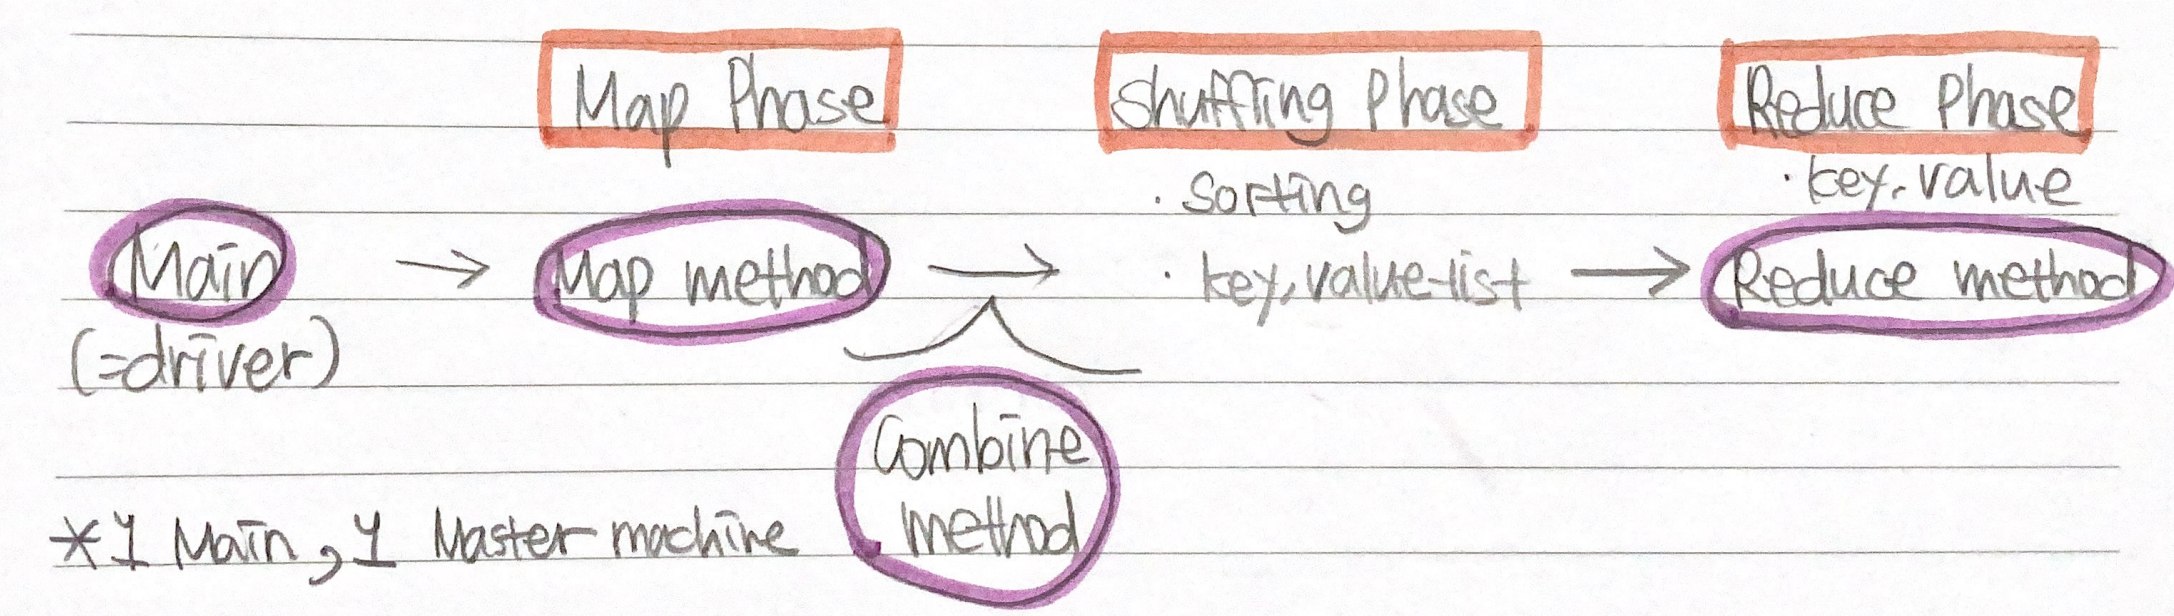 Map Phase
Shuffling Phase
Reduce Phase
· Sorting
· key, value
Main
→
Map method
→
· key, value-list
→
Reduce method
(=driver)
Combine
method
*1 Main, 1 Master machine